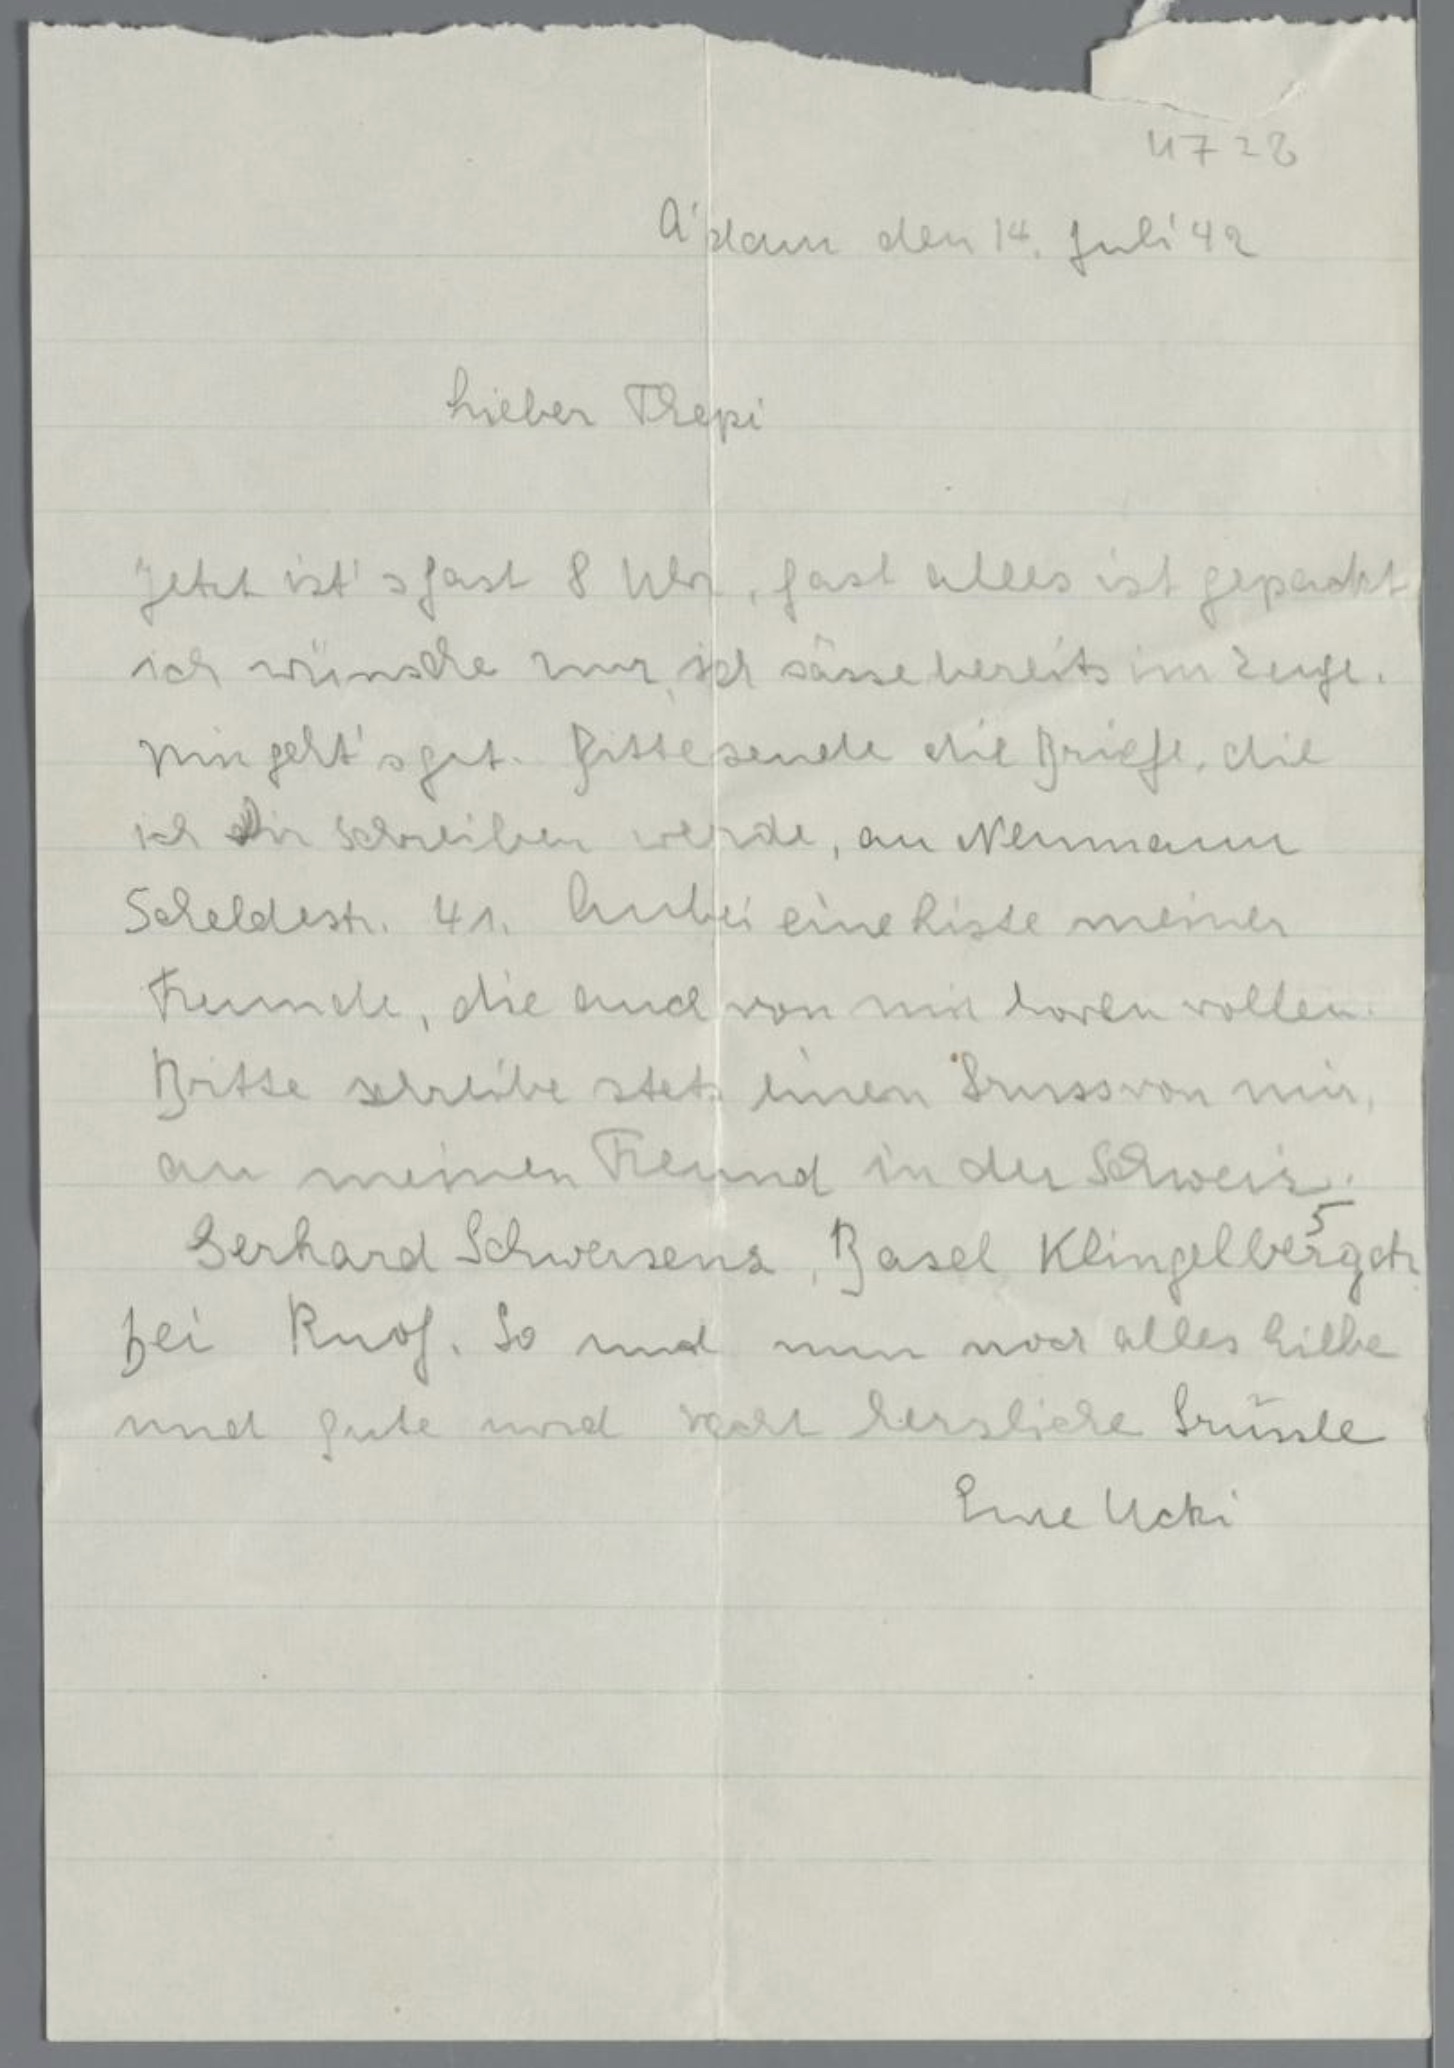 4728
A'dam den 14. Juli 42
Lieber Thepi
Jetzt ist's fast 8 Uhr, fast alles ist gepackt
ich wünsche nur, ich sässe bereits im Zuge.
Mir geht's gut. Bitte sende die Briefe, die
ich Dir schreiben werde, an Neumann
Scheldestr. 41. Anbei eine Liste meiner
Freunde, die auch von mir horen wollen.
Bitte schreibe stets einen Gruss von mir,
an meinen Freund in der Schweiz.
Gerhard Schwersenz, Basel Klingelbergstr. 5
bei Ruof. So und nun noch alles Liebe
und gute und recht herzliche Grüsse
Eure Ucki